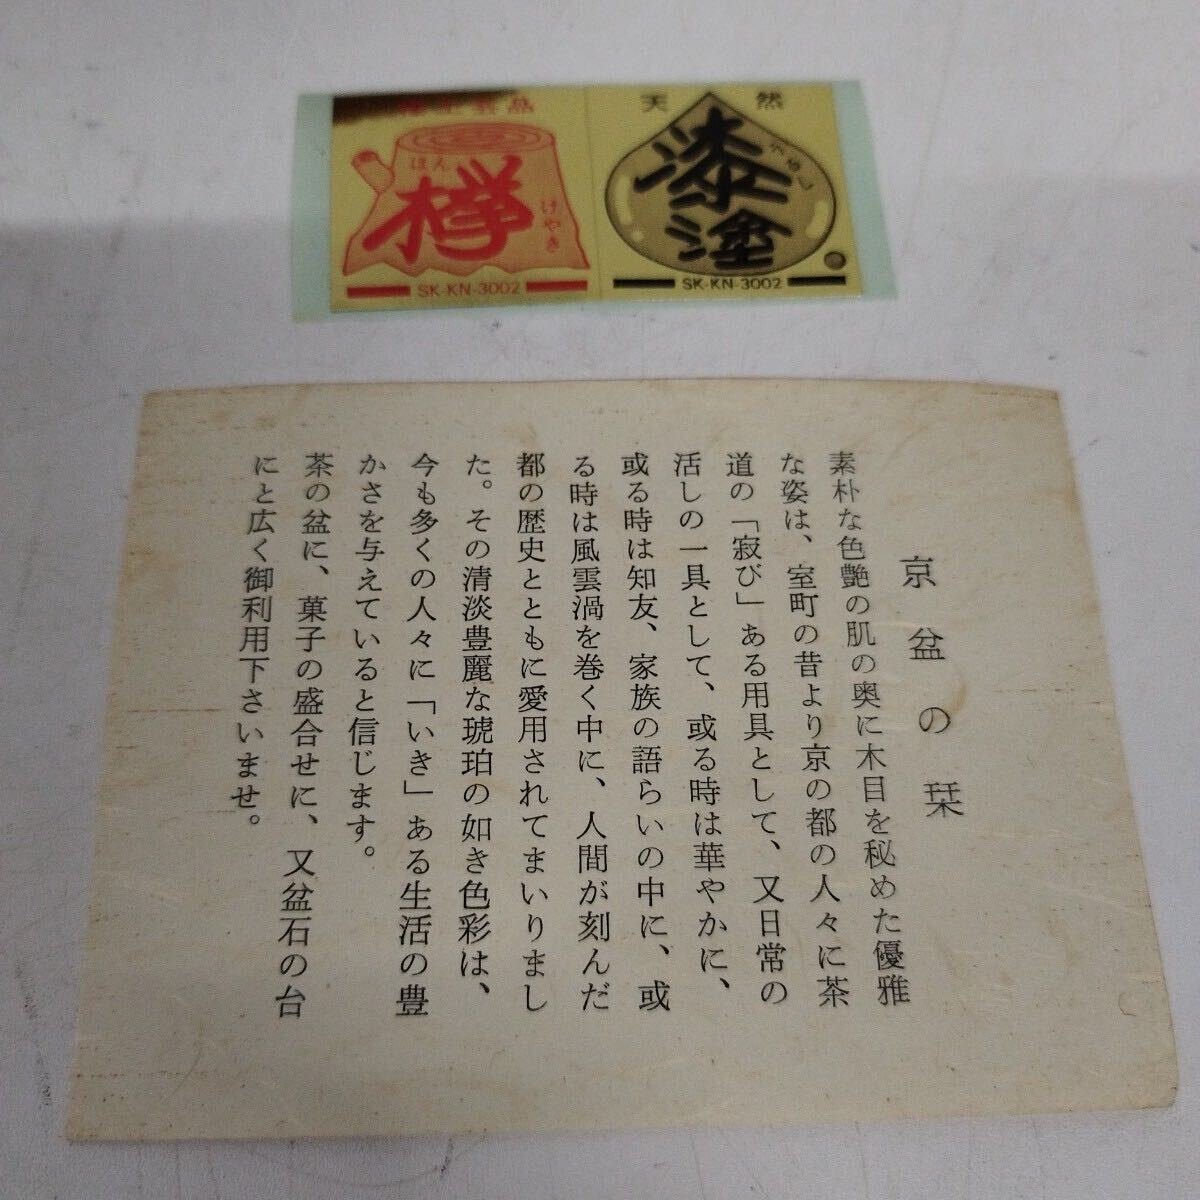 ほん
欅
けやき
SK-KN-3002
天然
漆塗
うるし
SK-KN-3002
京盆の栞
素朴な色艶の肌の奥に木目を秘めた優雅
な姿は、室町の昔より京の都の人々に茶
道の「寂び」ある用具として、又日常の
活しの一具として、或る時は華やかに、
或る時は知友、家族の語らいの中に、或
る時は風雲渦を巻く中に、人間が刻んだ
都の歴史とともに愛用されてまいりまし
た。その清淡豊麗な琥珀の如き色彩は、
今も多くの人々に「いき」ある生活の豊
かさを与えていると信じます。
茶の盆に、菓子の盛合せに、又盆石の台
にと広く御利用下さいませ。